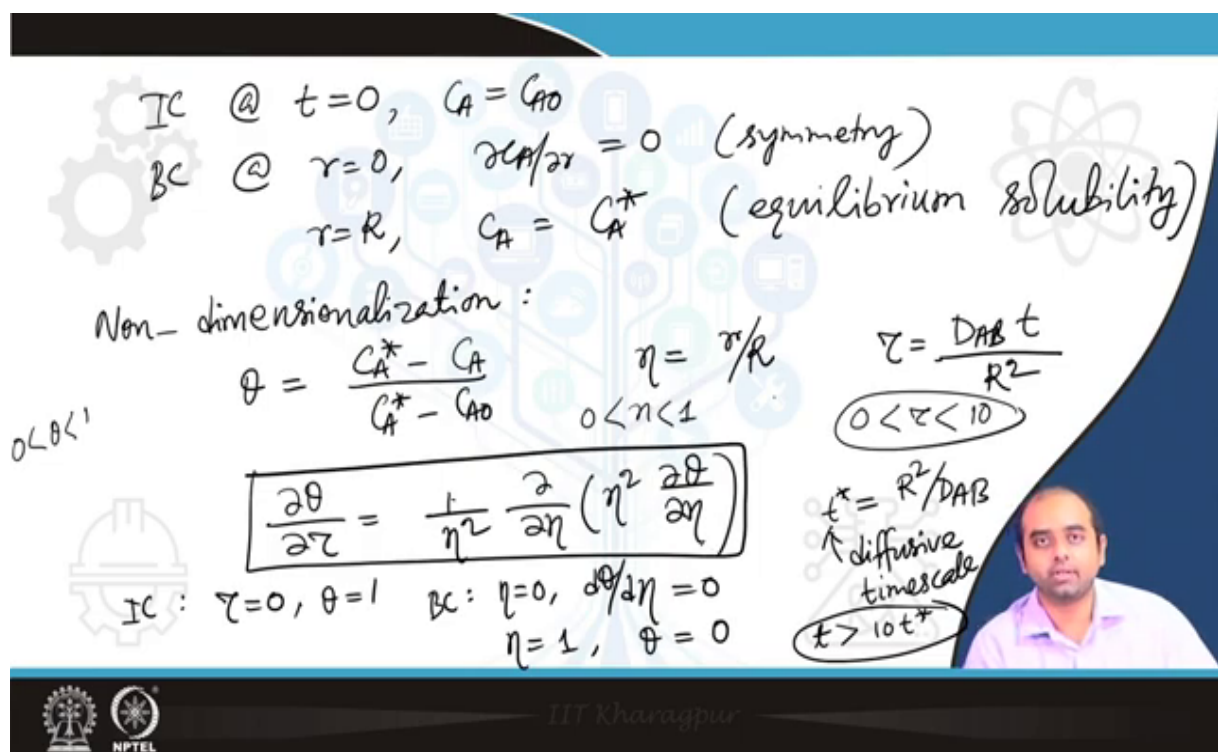 IC @ t=0, C_A = C_A0
BC @ r=0, ∂C_A/∂r = 0 (symmetry)
r=R, C_A = C_A* (equilibrium solubility)
Non-dimensionalization :
θ = (C_A* - C_A)/(C_A* - C_A0) η = r/R τ = D_AB t/R²
0<θ<1 0<η<1 0<τ<10
∂θ/∂τ = 1/η² ∂/∂η (η² ∂θ/∂η)
t* = R²/D_AB
↑ diffusive
timescale
IC : τ=0, θ=1 BC : η=0, dθ/dη = 0
η=1, θ=0
t > 10t*
IIT Kharagpur
NPTEL